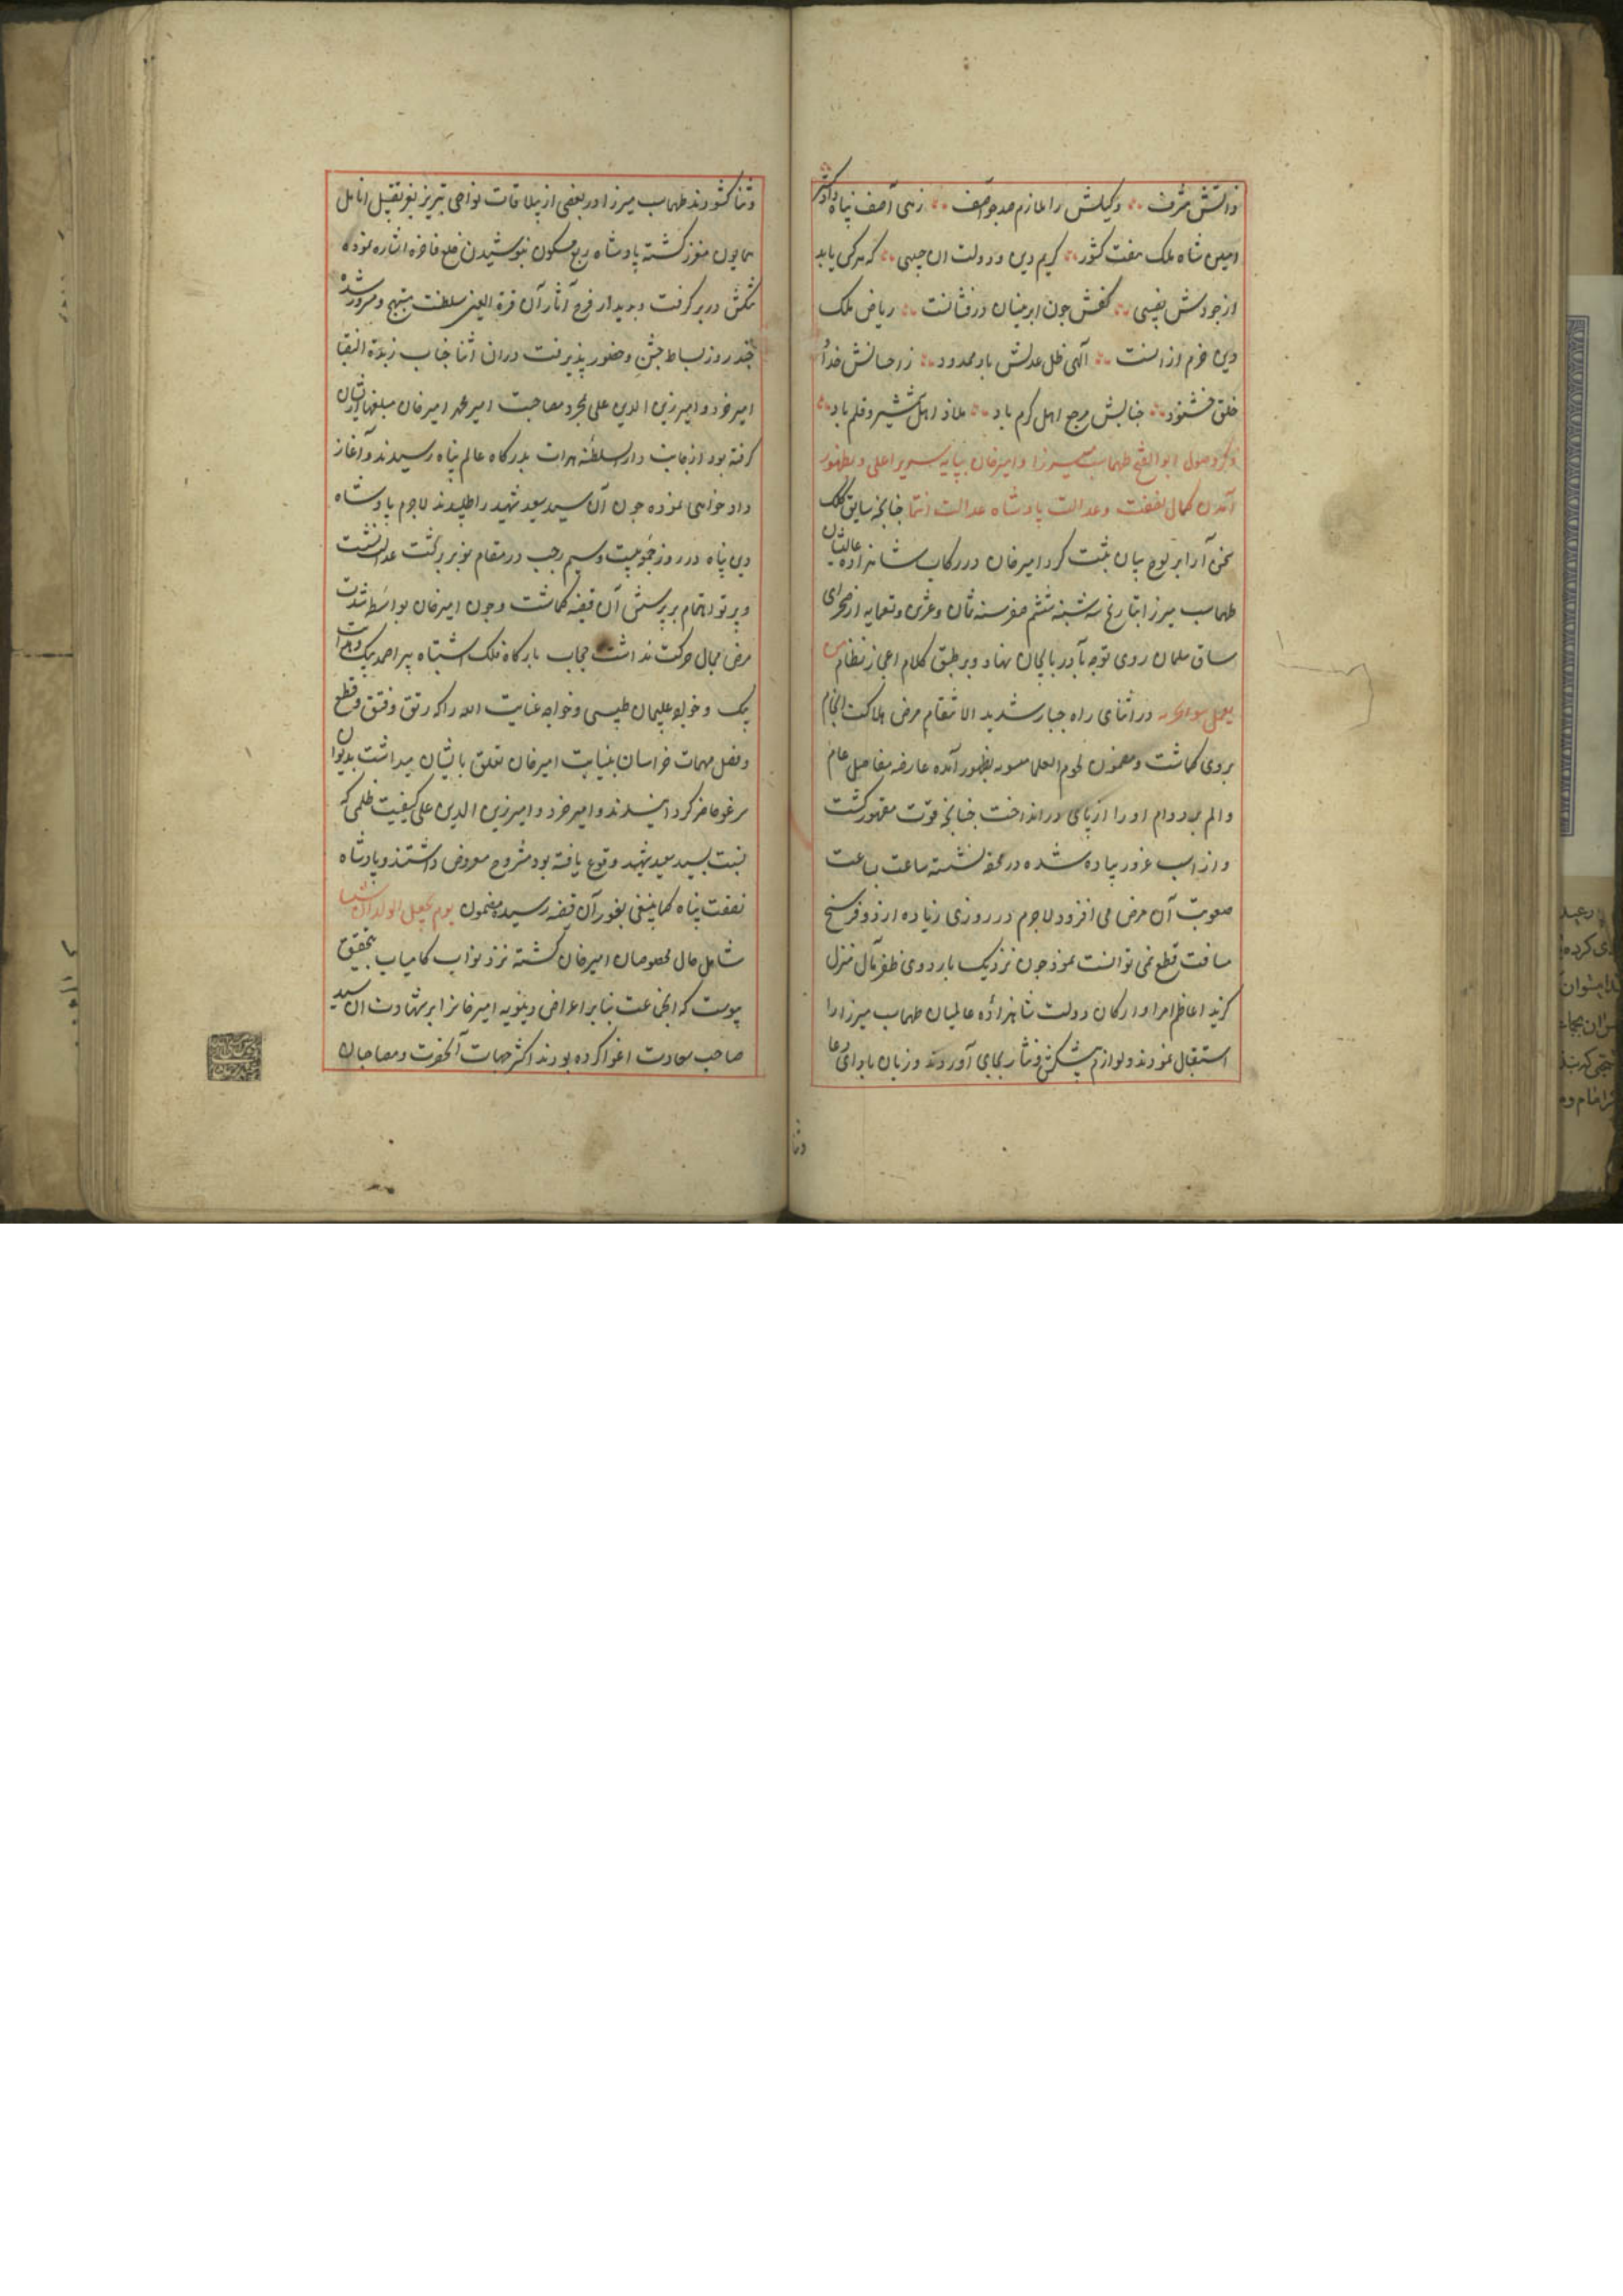 ذاتش مشرف وکیلش را ملازم صد چو آصف زهی آصف پناه دادگستر
امیس شاه ملک هفت کشور کریم دین و دولت ان حبیبی که هر کس یابد
از جودش نصیبی کفش چون ابر نیسان درفشانست ریاض ملک
دین خرم ازانست الهی ظل عدلش باد ممدود ز احسانش خدا و
خلق خشنود جنابش مرجع اهل کرم باد ملاذ اهل شمشیر و قلم باد
ذکر وصول ابو الفتح طهماسب میرزا و امیرخان بپایه سریر اعلی و بظهور
آمدن کمال نصفت و عدالت پادشاه عدالت انتما چنانچه سابق کلک
سخن آرا بر لوح بیان ثبت کرد امیرخان در رکاب شاهزاده عالیشان
طهماسب میرزا بتاریخ سه شنبه ششم صفر سنه ثمان و عشرین و تسعمایه از صحرای
ساق سلمان روی توجه بآذربایجان نهاد و بر طبق کلام اعجاز نظام من
یعمل سوءا یجز به در اثنای راه جبار شدید الانتقام مرض هلاکت انجام
بروی گماشت و مضمون لحوم العلما مسمومه بظهور آمده عارضه مفاصل عام
والم بردوام او را از پای در انداخت چنانچه قوت مقهور گشت
و از اسب غرور پیاده شده در محفه نشسته ساعت بساعت
صعوبت آن مرض می افزود لاجرم در روزی زیاده از دو فرسخ
مسافت قطع نمی توانست نمود چون نزدیک باردوی ظفر مآل منزل
گزید اعاظم امرا و ارکان دولت شاهزاده عالمیان طهماسب میرزا را
استقبال نمودند و لوازم پیشکش و نثار بجای آوردند و زبان بادای دعا
وثنا
وثنا گشودند طهماسب میرزا در بعضی از ییلاقات نواحی تبریز بعز تقبیل انامل
همایون معزز گشته پادشاه ربع مسکون بپوشیدن خلع فاخره اشاره نموده
تنگش دربر گرفت و بدیدار فرح آثار آن قرة العین سلطنت مبتهج و مسرور شده
چند روز بساط جشن و حضور پذیرفت دران اثنا جناب زبدة النقبا
امیر خرد و امیر زین الدین علی که بجرد مصاحبت امیر محمد امیرخان مبلغها ازیشان
گرفته بود از جانب دار السلطنه هرات بدرگاه عالم پناه رسیدند و آغاز
دادخواهی نموده خون آن سید سعید شهید را طلبیدند لاجرم پادشاه
دین پناه در روز جمعه بیست و سیم رجب در مقام عدالت نشست
و پرتو اهتمام بر پرسش آن قضیه گماشت و چون امیرخان بواسطه شدت
مرض مجال حرکت نداشت حجاب بارگاه فلک اشتباه پیر احمد بیک و بهرام
بیک و خواجه سلیمان طبسی و خواجه عنایت الله را که رتق و فتق و قطع
و فصل مهمات خراسان بنیابت امیرخان تعلق بایشان میداشت بدیوان
یرغو حاضر گردانیدند و امیر خرد و امیر زین الدین علی کیفیت ظلمی که
نسبت بسید سعید شهید وقوع یافته بود مشروح معروض داشتند و پادشاه
نصفت پناه کما ینبغی بغور آن قضیه رسیده مضمون یوم یجعل الولدان شیبا
شامل حال مخصوصان امیرخان گشته نزد نواب کامیاب بتحقیق
پیوست که انجماعت بنابر اغراض دنیویه امیرخانرا بر شهادت ان سید
صاحب سعادت اغوا کرده بودند اکثر جهات آنحضرت و مصاحبان